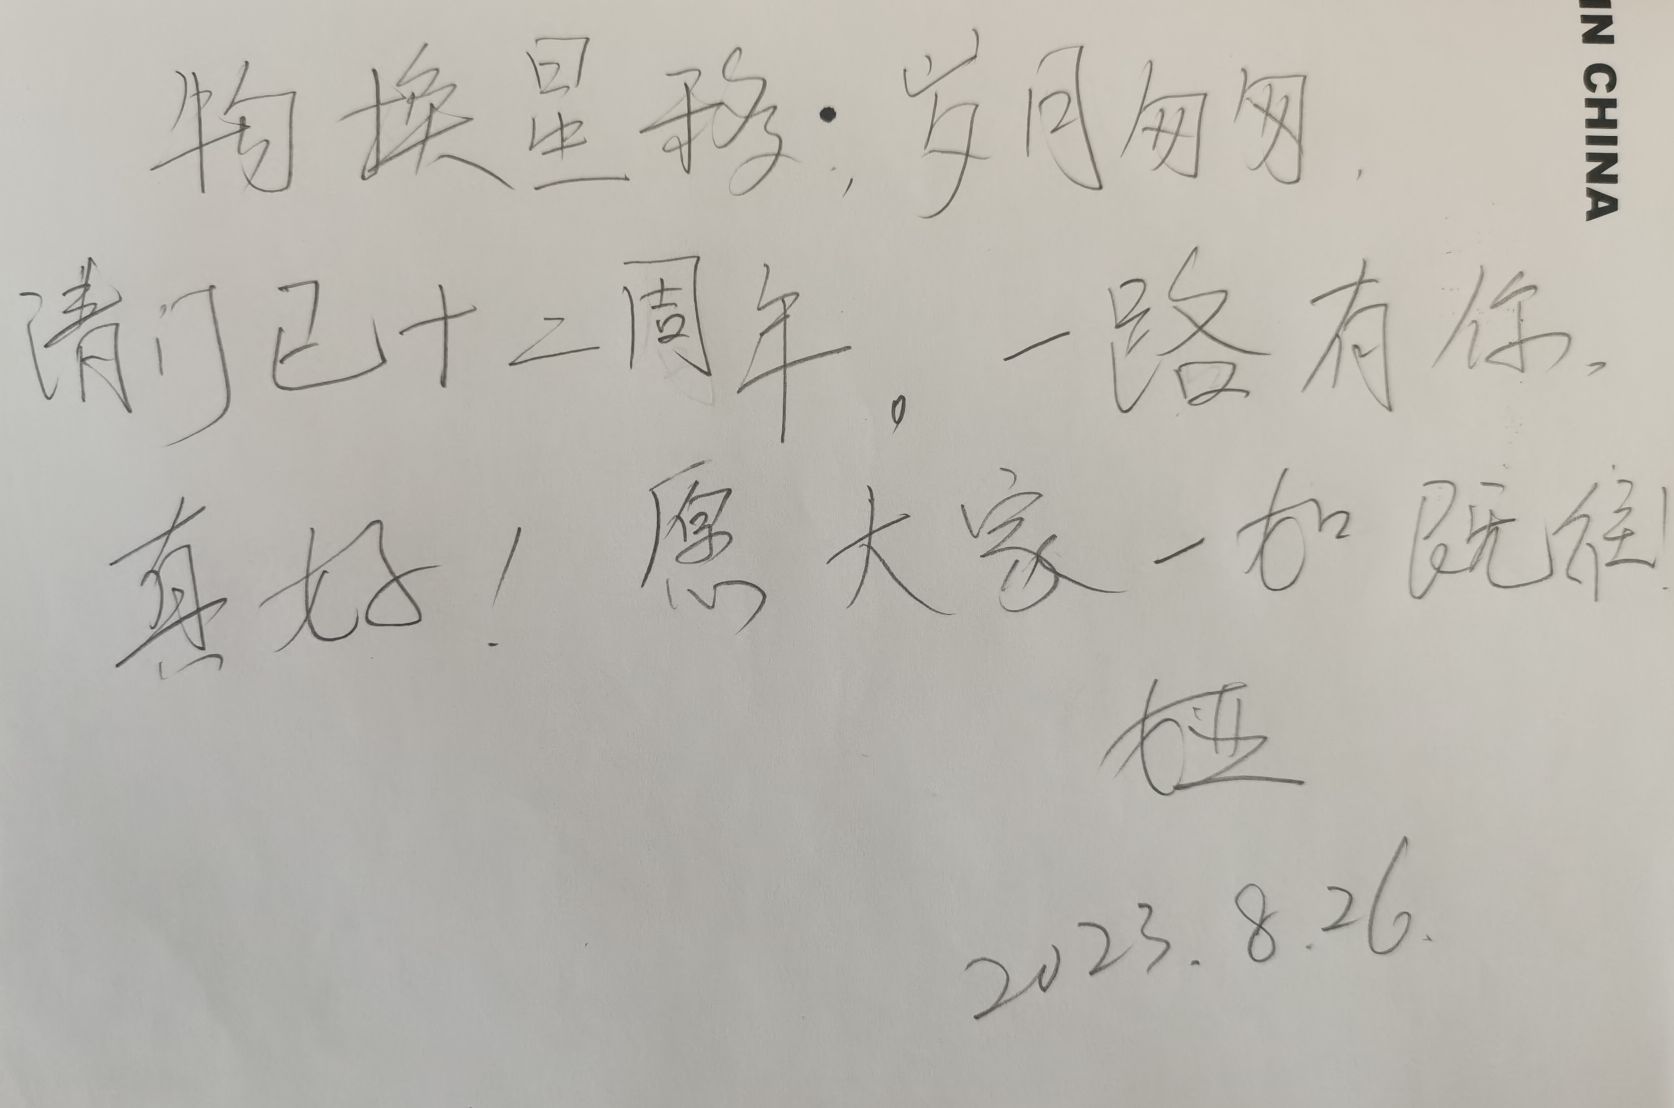 物换星移，岁月匆匆，
清门已十二周年。一路有你，
真好！愿大家一如既往！
娅
2023.8.26.
IN CHINA